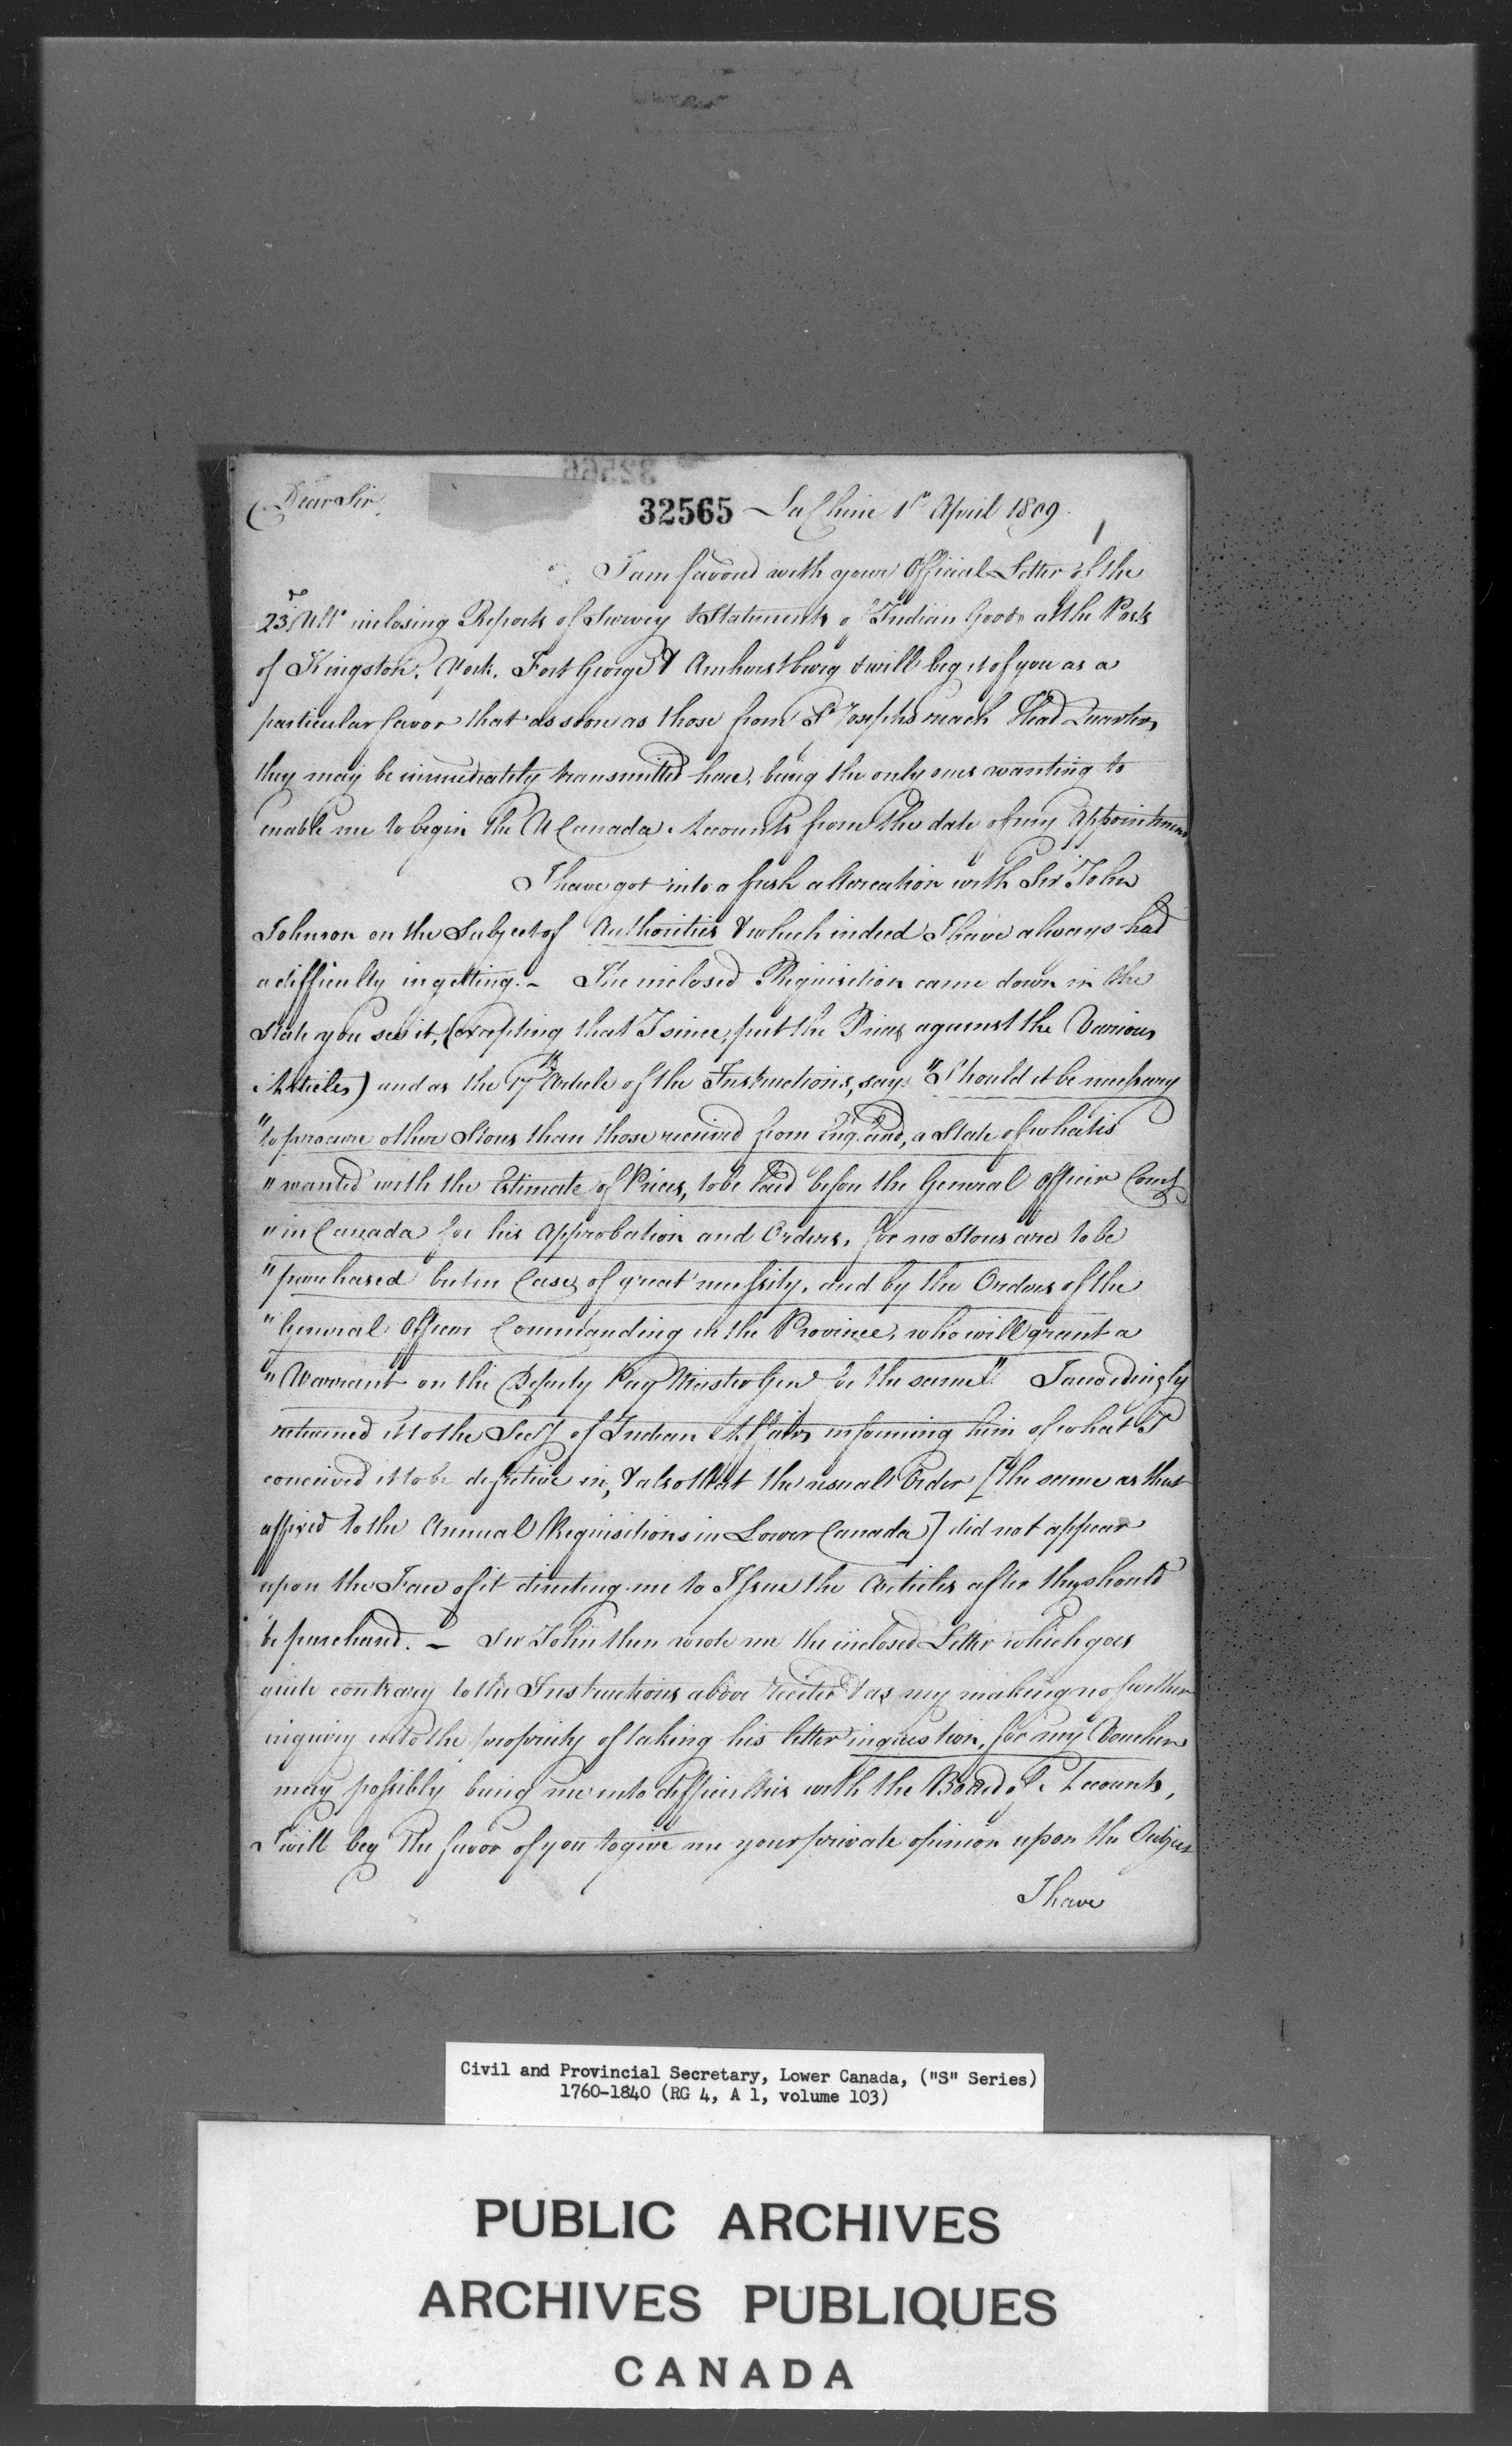 32566
Dear Sir,
32565 La Chine 1st April 1809.
1
I am favord with your Official Letter of the
23d Ulto inclosing Reports of Survey & Statements of Indian Goods at the Posts
of Kingston, York, Fort George & Amherstburg & will beg it of you as a
particular favor that as soon as those from St Josephs reach Head Quarters,
they may be immediately transmitted here, being the only ones wanting to
enable me to begin the U Canada Accounts from the date of my Appointment
I have got into a fresh altercation with Sir John
Johnson on the Subject of Authorities & which indeed I have always had
a difficulty in getting. - The inclosed Requisition came down in the
State you see it, (excepting that I since, put the Prices against the Various
Articles) and as the 17th Article of the Instructions, says "Should it be necessary
"to procure other Stores than those received from England, a State of what is
"wanted with the Estimate of Prices, to be laid before the General Officer Comg
"in Canada for his Approbation and Orders, for no Stores are to be
"purchased but in Cases of great necessity, and by the Orders of the
"General Officer Commanding in the Province, who will grant a
"Warrant on the Deputy Pay Master Genl for the same". I accordingly
returned it to the Secy of Indian Affairs informing him of what I
conceived it to be defective in, & also that the usual Order [the same as that
affixed to the Annual Requisitions in Lower Canada] did not appear
upon the Face of it directing me to Issue the Articles after they should
be purchased. - Sir John then wrote me the inclosed Letter which goes
quite contrary to the Instructions above recited & as my making no further
inquiry into the propriety of taking his letter in question, for my Voucher
may possibly bring me into difficulties with the Board of Accounts,
I will beg the favor of you to give me your private opinion upon the Subject
I have
Civil and Provincial Secretary, Lower Canada, ("S" Series)
1760-1840 (RG 4, A 1, volume 103)
PUBLIC ARCHIVES
ARCHIVES PUBLIQUES
CANADA